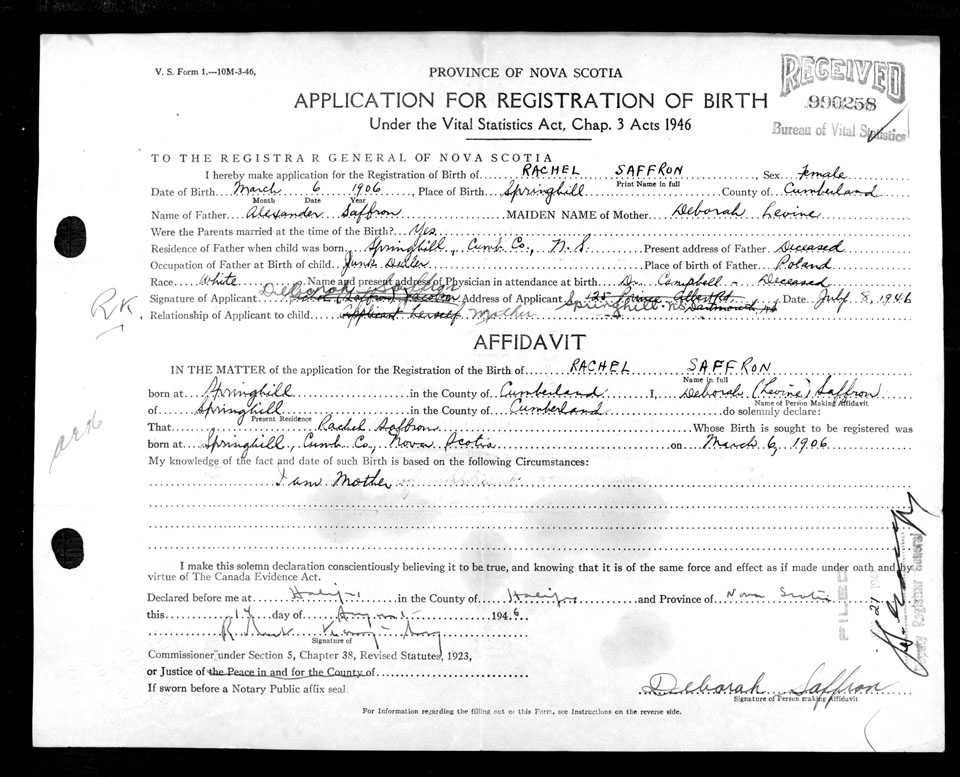 V. S. Form 1.—10M-3-46,
PROVINCE OF NOVA SCOTIA
RECEIVED
990258
Bureau of Vital Statistics
APPLICATION FOR REGISTRATION OF BIRTH
Under the Vital Statistics Act, Chap. 3 Acts 1946
TO THE REGISTRAR GENERAL OF NOVA SCOTIA
I hereby make application for the Registration of Birth of RACHEL SAFFRON, Sex Female
Print Name in full
Date of Birth March 6 1906, Place of Birth Springhill County of Cumberland
Month Date Year
Name of Father Alexander Saffron MAIDEN NAME of Mother Deborah Levine
Were the Parents married at the time of the Birth? Yes
Residence of Father when child was born Springhill, Cumb. Co., N. S. Present address of Father Deceased
Occupation of Father at Birth of child Junk Dealer Place of birth of Father Poland
Race White Name and present address of Physician in attendance at birth Dr. Campbell - Deceased
Signature of Applicant Deborah Saffron Address of Applicant Springhill N.S. Date July 8, 1946
RK
Relationship of Applicant to child Applicant herself Mother
AFFIDAVIT
IN THE MATTER of the application for the Registration of the Birth of RACHEL SAFFRON
Name in full
born at Springhill in the County of Cumberland I, Deborah (Levine) Saffron
Name of Person Making Affidavit
of Springhill in the County of Cumberland do solemnly declare:
Present Residence
That Rachel Saffron Whose Birth is sought to be registered was
born at Springhill, Cumb. Co., Nova Scotia on March 6, 1906
My knowledge of the fact and date of such Birth is based on the following Circumstances:
I am Mother
I make this solemn declaration conscientiously believing it to be true, and knowing that it is of the same force and effect as if made under oath and by
virtue of The Canada Evidence Act.
Declared before me at Halifax in the County of Halifax and Province of Nova Scotia
this 17 day of August 1946
Signature of
Commissioner under Section 5, Chapter 38, Revised Statutes, 1923,
or Justice of the Peace in and for the County of
If sworn before a Notary Public affix seal.
Deborah Saffron
Signature of Person making Affidavit
FILED
21
Deputy Registrar General
For Information regarding the filling out of this Form, see Instructions on the reverse side.